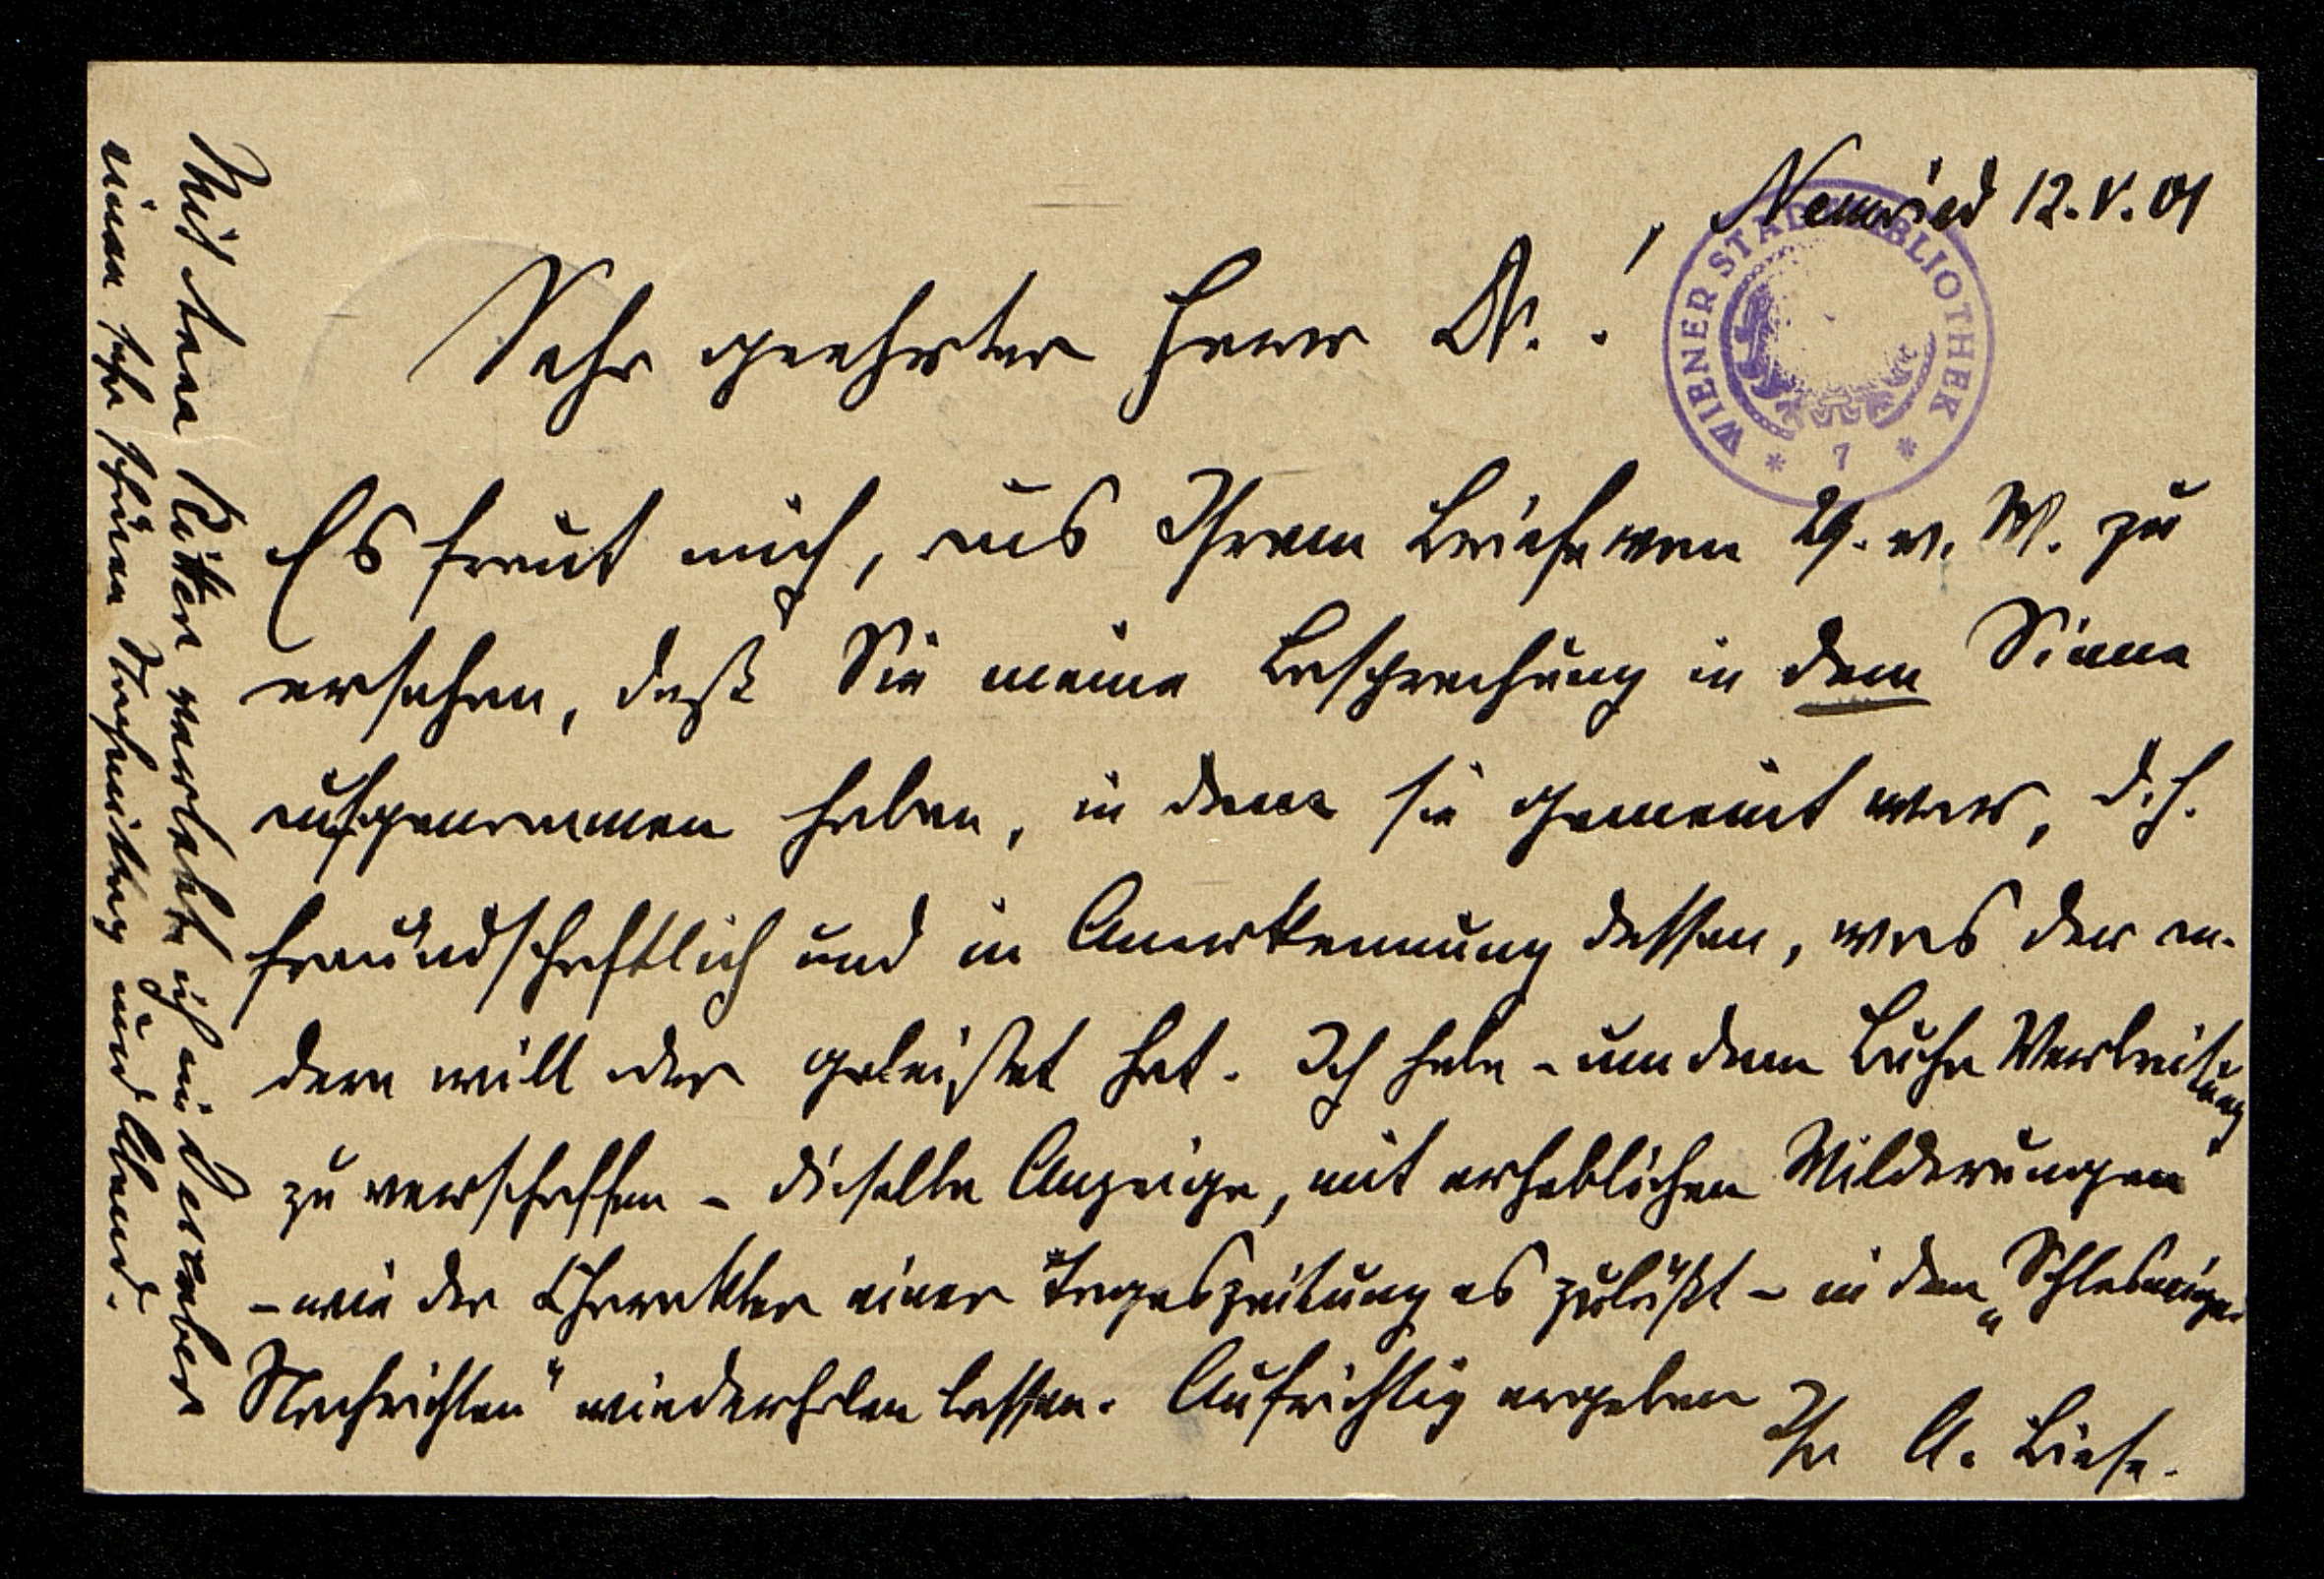 Neuwied 12.V.01
WIENER STADTBIBLIOTHEK
* 7 *
Sehr geehrter Herr Dr.!
Es freut mich, aus Ihrem Briefe vom 29. v. M. zu
ersehen, daß Sie meine Besprechung in dem Sinne
aufgenommen haben, in dem sie gemeint war, d. h.
freundschaftlich und in Anerkennung dessen, was der an-
dere will oder geleistet hat. Ich habe - um dem Buche Verbreitung
zu verschaffen - dieselbe Anzeige, mit erheblichen Milderungen
- wie der Charakter einer Tageszeitung es zuläßt - in den „Schleswiger
Nachrichten" wiederholen lassen. Aufrichtig ergeben
Ihr A. Biese.
Mit Ritter verlebte ich im Dezember
einen sehr schönen Nachmittag und Abend.